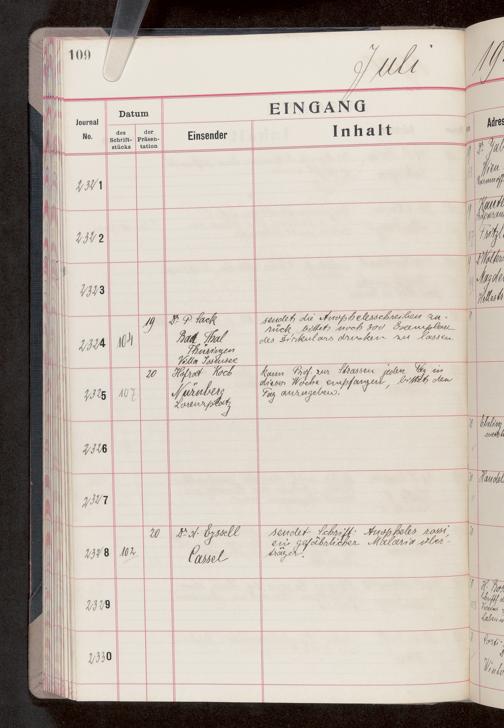 109
Juli
19
EINGANG
Journal No.
Datum
des Schrift-stücks
der Präsen-tation
Einsender
Inhalt
Adres
2321
2322
2323
2324
104
19
Dr. P. Sack
Bad Thal
Thüringen
Villa
sendet die Anophelesschreiben zu-
rück, bittet noch 300 Exemplare
des Zirkulars drucken zu lassen.
2325
107
20
Hofrat Koch
Nürnberg
Lorenzplatz
Kann Prof. zur Strassen jeden Tag in
dieser Woche empfangen, bittet den
Tag anzugeben.
2326
2327
2328
102
20
Dr. A. Eysell
Cassel
sendet Schrift: Anopheles rossi
ein gefährlicher Malaria über-
träger.
2329
2330
Wien